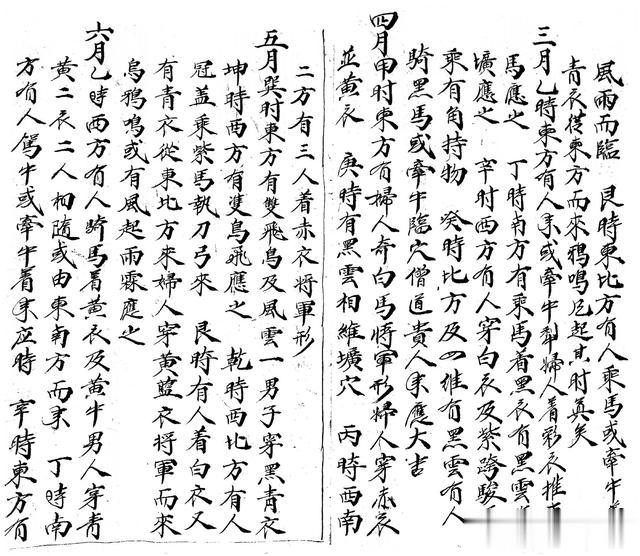 風雨而臨　艮時東北方有人乘馬或牽牛
青衣從東方而來鴉鳴瓦起其时真矣
三月乙時東方有人來或牽牛犁婦人着彩衣推
馬應之　丁時南方有乘馬着黑衣有黑雲
壙應之　辛时西方有人穿白衣及紫跨駿
乘有角持物　癸時比方及四維有黑雲有人
騎黑馬或牽牛臨穴僧道貴人來應大吉
四月甲时東方有婦人奇白馬將軍形婦人穿赤衣
並黃衣　庚時有黑雲相維壙穴　丙時西南
二方有三人着赤衣將軍形
五月巽时東方有雙飛鳥及風雲一男子穿黑青衣
坤時西方有雙鳥飛應之　乾時西比方有人
冠蓋乘紫馬執刀弓來　艮時有人着白衣又
有青衣從東比方來婦人穿黃藍衣將軍而來
烏鴉鳴或有風起雨霖應之
六月乙時西方有人騎馬着黃衣及黃牛男人穿青
黃二衣二人相隨或由東南方而來　丁時南
方有人駕牛或牽牛着來应時　辛時東方有